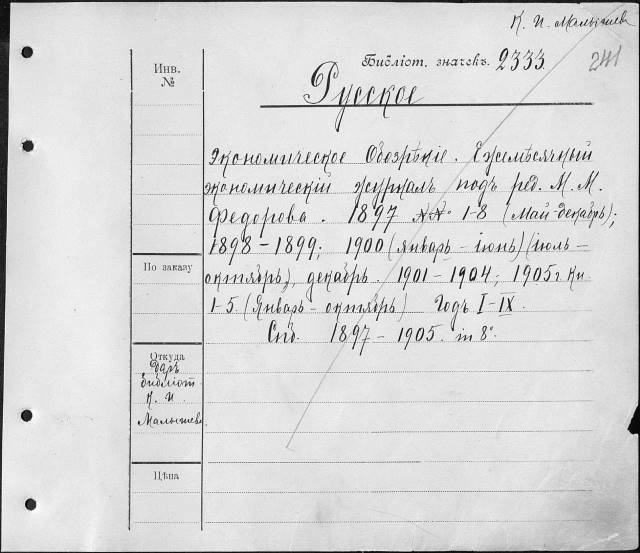 К. И. Малышева
241
Инв.
№
Библіот. значекъ 2333.
Русское
Экономическое Обозрѣніе. Ежемѣсячный
экономическій журналъ подъ ред. М. М.
Федорова. 1897 №№ 1-8 (Май-декабрь);
1898 – 1899; 1900 (январь – іюнь) (іюль –
октябрь), декабрь. 1901 – 1904; 1905 г. Кн.
1-5. (Январь – октябрь) Годъ I – IX.
Спб. 1897 – 1905. in 8°.
По заказу
Откуда
Даръ
библіот.
К. И.
Малышева.
Цѣна